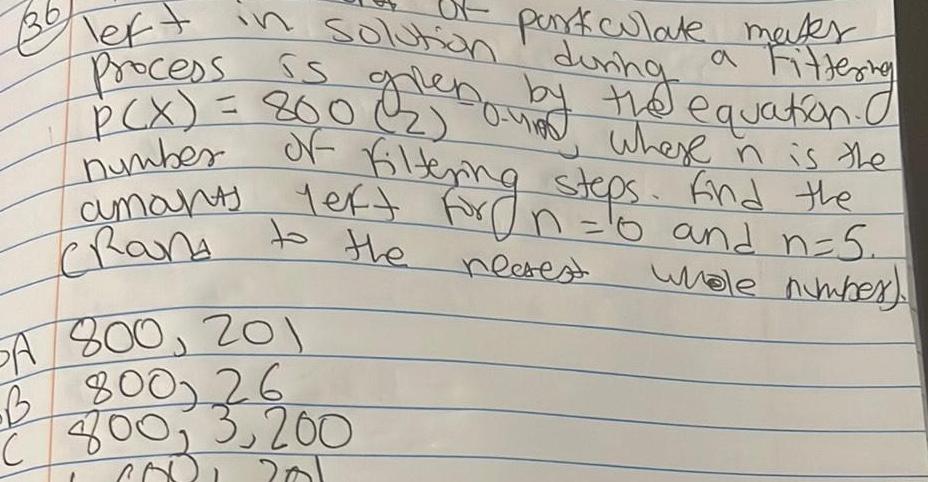 36 left in solution of particulate matter
during a Filtering
Process is given by the equation.
P(X) = 800 (2) where n is the
number of filtering steps. Find the
amants left for n = 0 and n=5.
(Rans to the nearest whole number).
A 800, 201
B 800, 26
C 800, 3,200
201